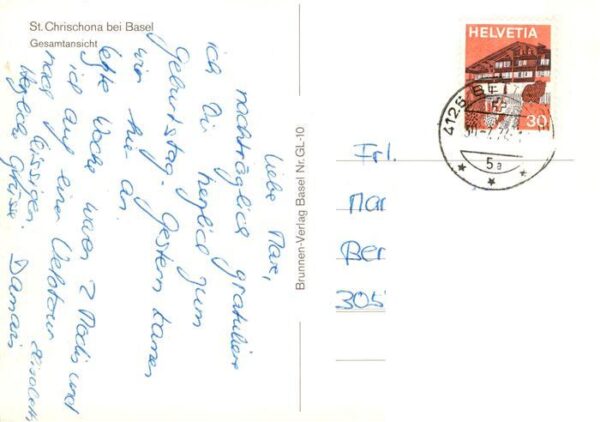 St. Chrischona bei Basel
Gesamtansicht
Liebe
nachträglich gratuliere
ich Dir herzlich zum
Geburtstag. Gestern kamen
wir hier an.
letzte Woche waren 2 Mädis und
ich auf einer Velotour
nach
Herzlich Grüsse Damaris
Brunnen-Verlag Basel Nr. GL-10
HELVETIA
30
4126 BETT
5a
Frl.
Mar
Ber
305